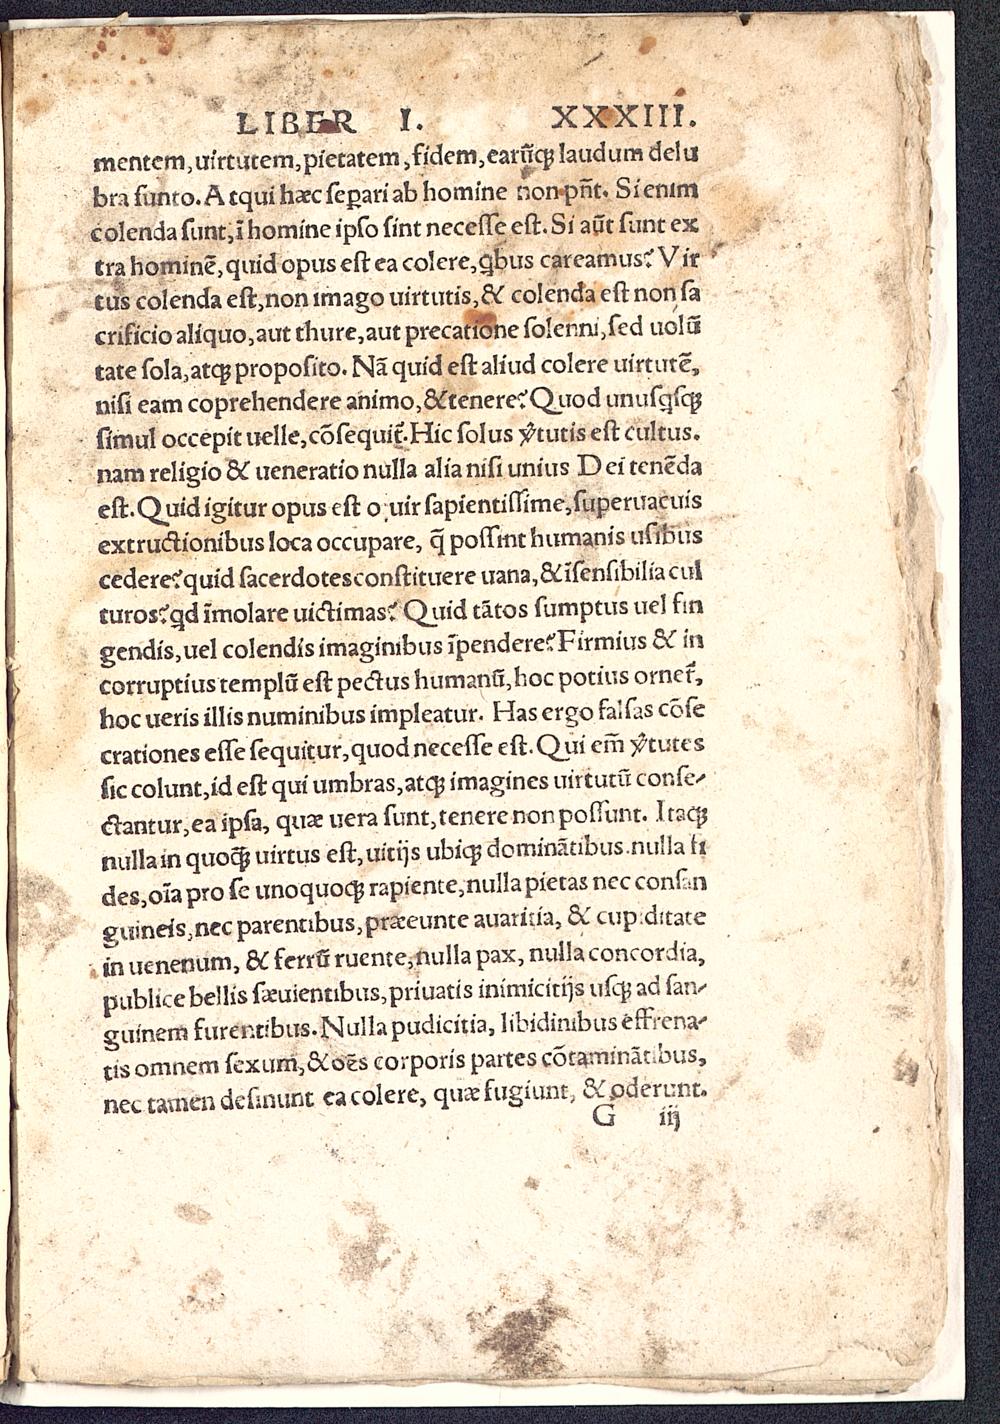 LIBER I. XXXIII.
mentem, uirtutem, pietatem, fidem, earũqꝫ laudum delu
bra sunto. Atqui hæc seꝑari ab homine non pñt. Si enim
colenda sunt, ĩ homine ipso sint necesse est. Si aũt sunt ex
tra hominẽ, quid opus est ea colere, ꝗbus careamus? Vir
tus colenda est, non imago uirtutis, & colenda est non sa
crificio aliquo, aut thure, aut precatione solenni, sed uolũ
tate sola, atqꝫ proposito. Nã quid est aliud colere uirtutẽ,
nisi eam coprehendere animo, & tenere? Quod unusꝗsqꝫ
simul occepit uelle, cõsequit̃. Hic solus ṽtutis est cultus.
nam religio & ueneratio nulla alia nisi unius Dei tenẽda
est. Quid igitur opus est o uir sapientissime, superuacuis
extructionibus loca occupare, q̃ possint humanis usibus
cedere? quid sacerdotes constituere uana, & ĩsensibilia cul
turos? ꝗd ĩmolare uictimas? Quid tãtos sumptus uel fin
gendis, uel colendis imaginibus ĩpendere? Firmius & in
corruptius templũ est pectus humanũ, hoc potius ornet̃,
hoc ueris illis numinibus impleatur. Has ergo falsas cõse
crationes esse sequitur, quod necesse est. Qui em̃ ṽtutes
sic colunt, id est qui umbras, atqꝫ imagines uirtutũ conse-
ctantur, ea ipsa, quæ uera sunt, tenere non possunt. Itaqꝫ
nulla in quoq̃ꝫ uirtus est, uitijs ubiqꝫ dominãtibus. nulla fi
des, oĩa pro se unoquoqꝫ rapiente, nulla pietas nec consan
guineis, nec parentibus, præeunte auaritia, & cupiditate
in uenenum, & ferrũ ruente, nulla pax, nulla concordia,
publice bellis sæuientibus, priuatis inimicitijs usqꝫ ad san-
guinem furentibus. Nulla pudicitia, libidinibus effrena-
tis omnem sexum, & oẽs corporis partes cõtaminãtibus,
nec tamen desinunt ea colere, quæ fugiunt, & oderunt.
G iij